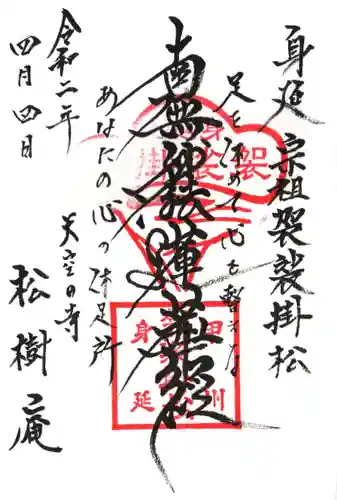 身延 宗祖袈裟掛松
足をとめて心を整える
南無妙法蓮華経
あなたの心の休足所
天空の寺
松樹庵
令和二年
四月四日
袈裟掛
身延